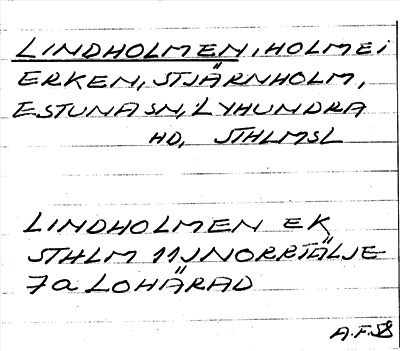 LINDHOLMEN, HOLME i
ERKEN, STJÄRNHOLM,
ESTUNA SN, LYHUNDRA
HD, STHLMSL
LINDHOLMEN EK
STHLM 11J NORRTÄLJE
7a LOHÄRAD
A.F.58